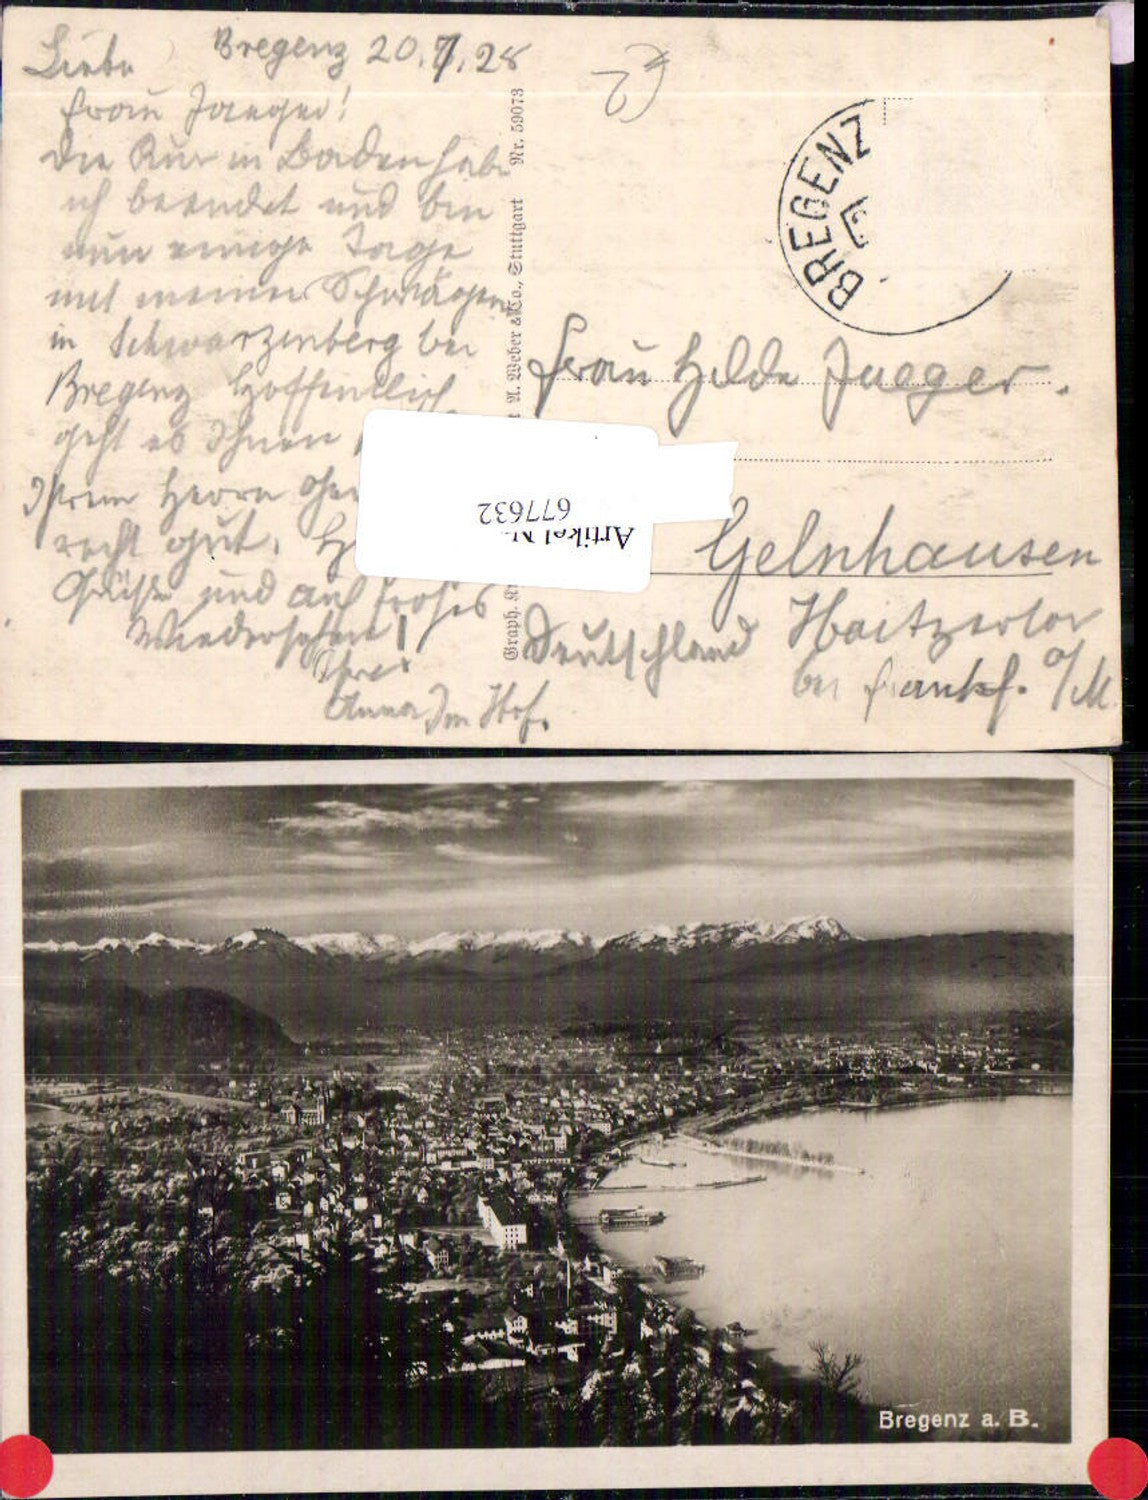 Bregenz 20.7.28
Liebe
Frau Jaeger!
Die Kur in Baden habe
ich beendet und bin
nun einige Tage
mit meiner Schwägerin
in Schwarzenberg bei
Bregenz. Hoffentlich
geht es Ihnen
Ihrem Herrn
recht gut.
Grüße und auf frohes
Wiedersehen!
Ihre
Anna Im Hof.
Nr. 59073
A. Weber & Co., Stuttgart
Graph.
BREGENZ
Frau Hilde Jaeger.
Gelnhausen
Haitzertor
bei Frankf. a/M.
Deutschland
Artikel Nr.
677632
Bregenz a. B.